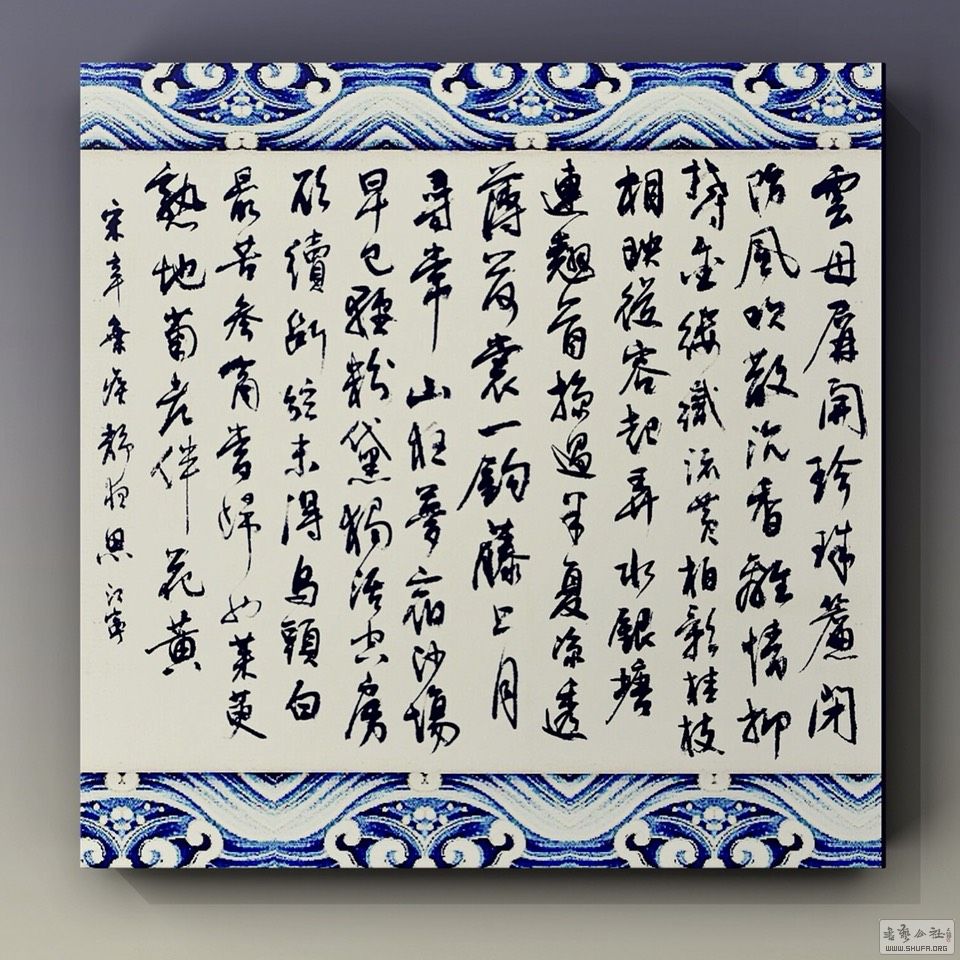 雲母屏開珍珠簾閉
防風吹散沉香離情抑
金縷織流黄柏影桂枝
相映從容起弄水銀塘
連翹首掠過半夏涼透
薄荷裳一鈎藤上月
尋常山夜夢宿沙場
早已輕粉黛獨活空房
欲續斷絃未得烏頭白
最苦參商當歸也茱萸
熟地菊老伴花黄
宋辛棄疾靜夜思
WWW.SHUFA.ORG